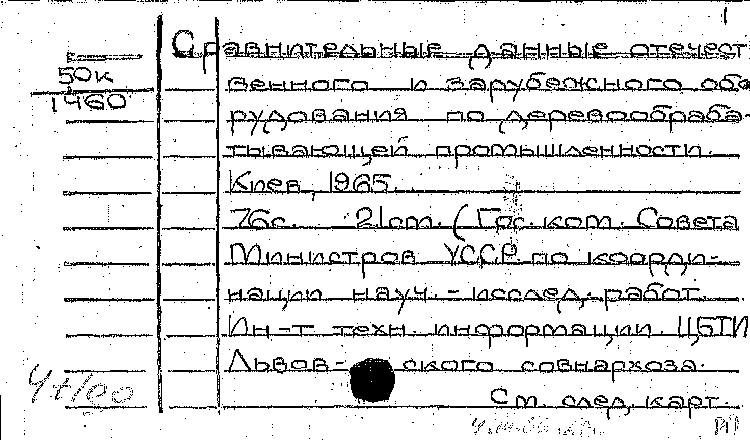 Сравнительные данные отечест
50к
венного и зарубежного обо
1960
рудования по деревообраба-
тывающей промышленности.
Киев, 1965.
76с. 21см. (Гос. ком. Совета
Министров УССР по коорди-
нации науч.-исслед. работ.
Ин-т техн. информации. ЦБТИ
Львов-ского совнархоза.
См. след. карт.